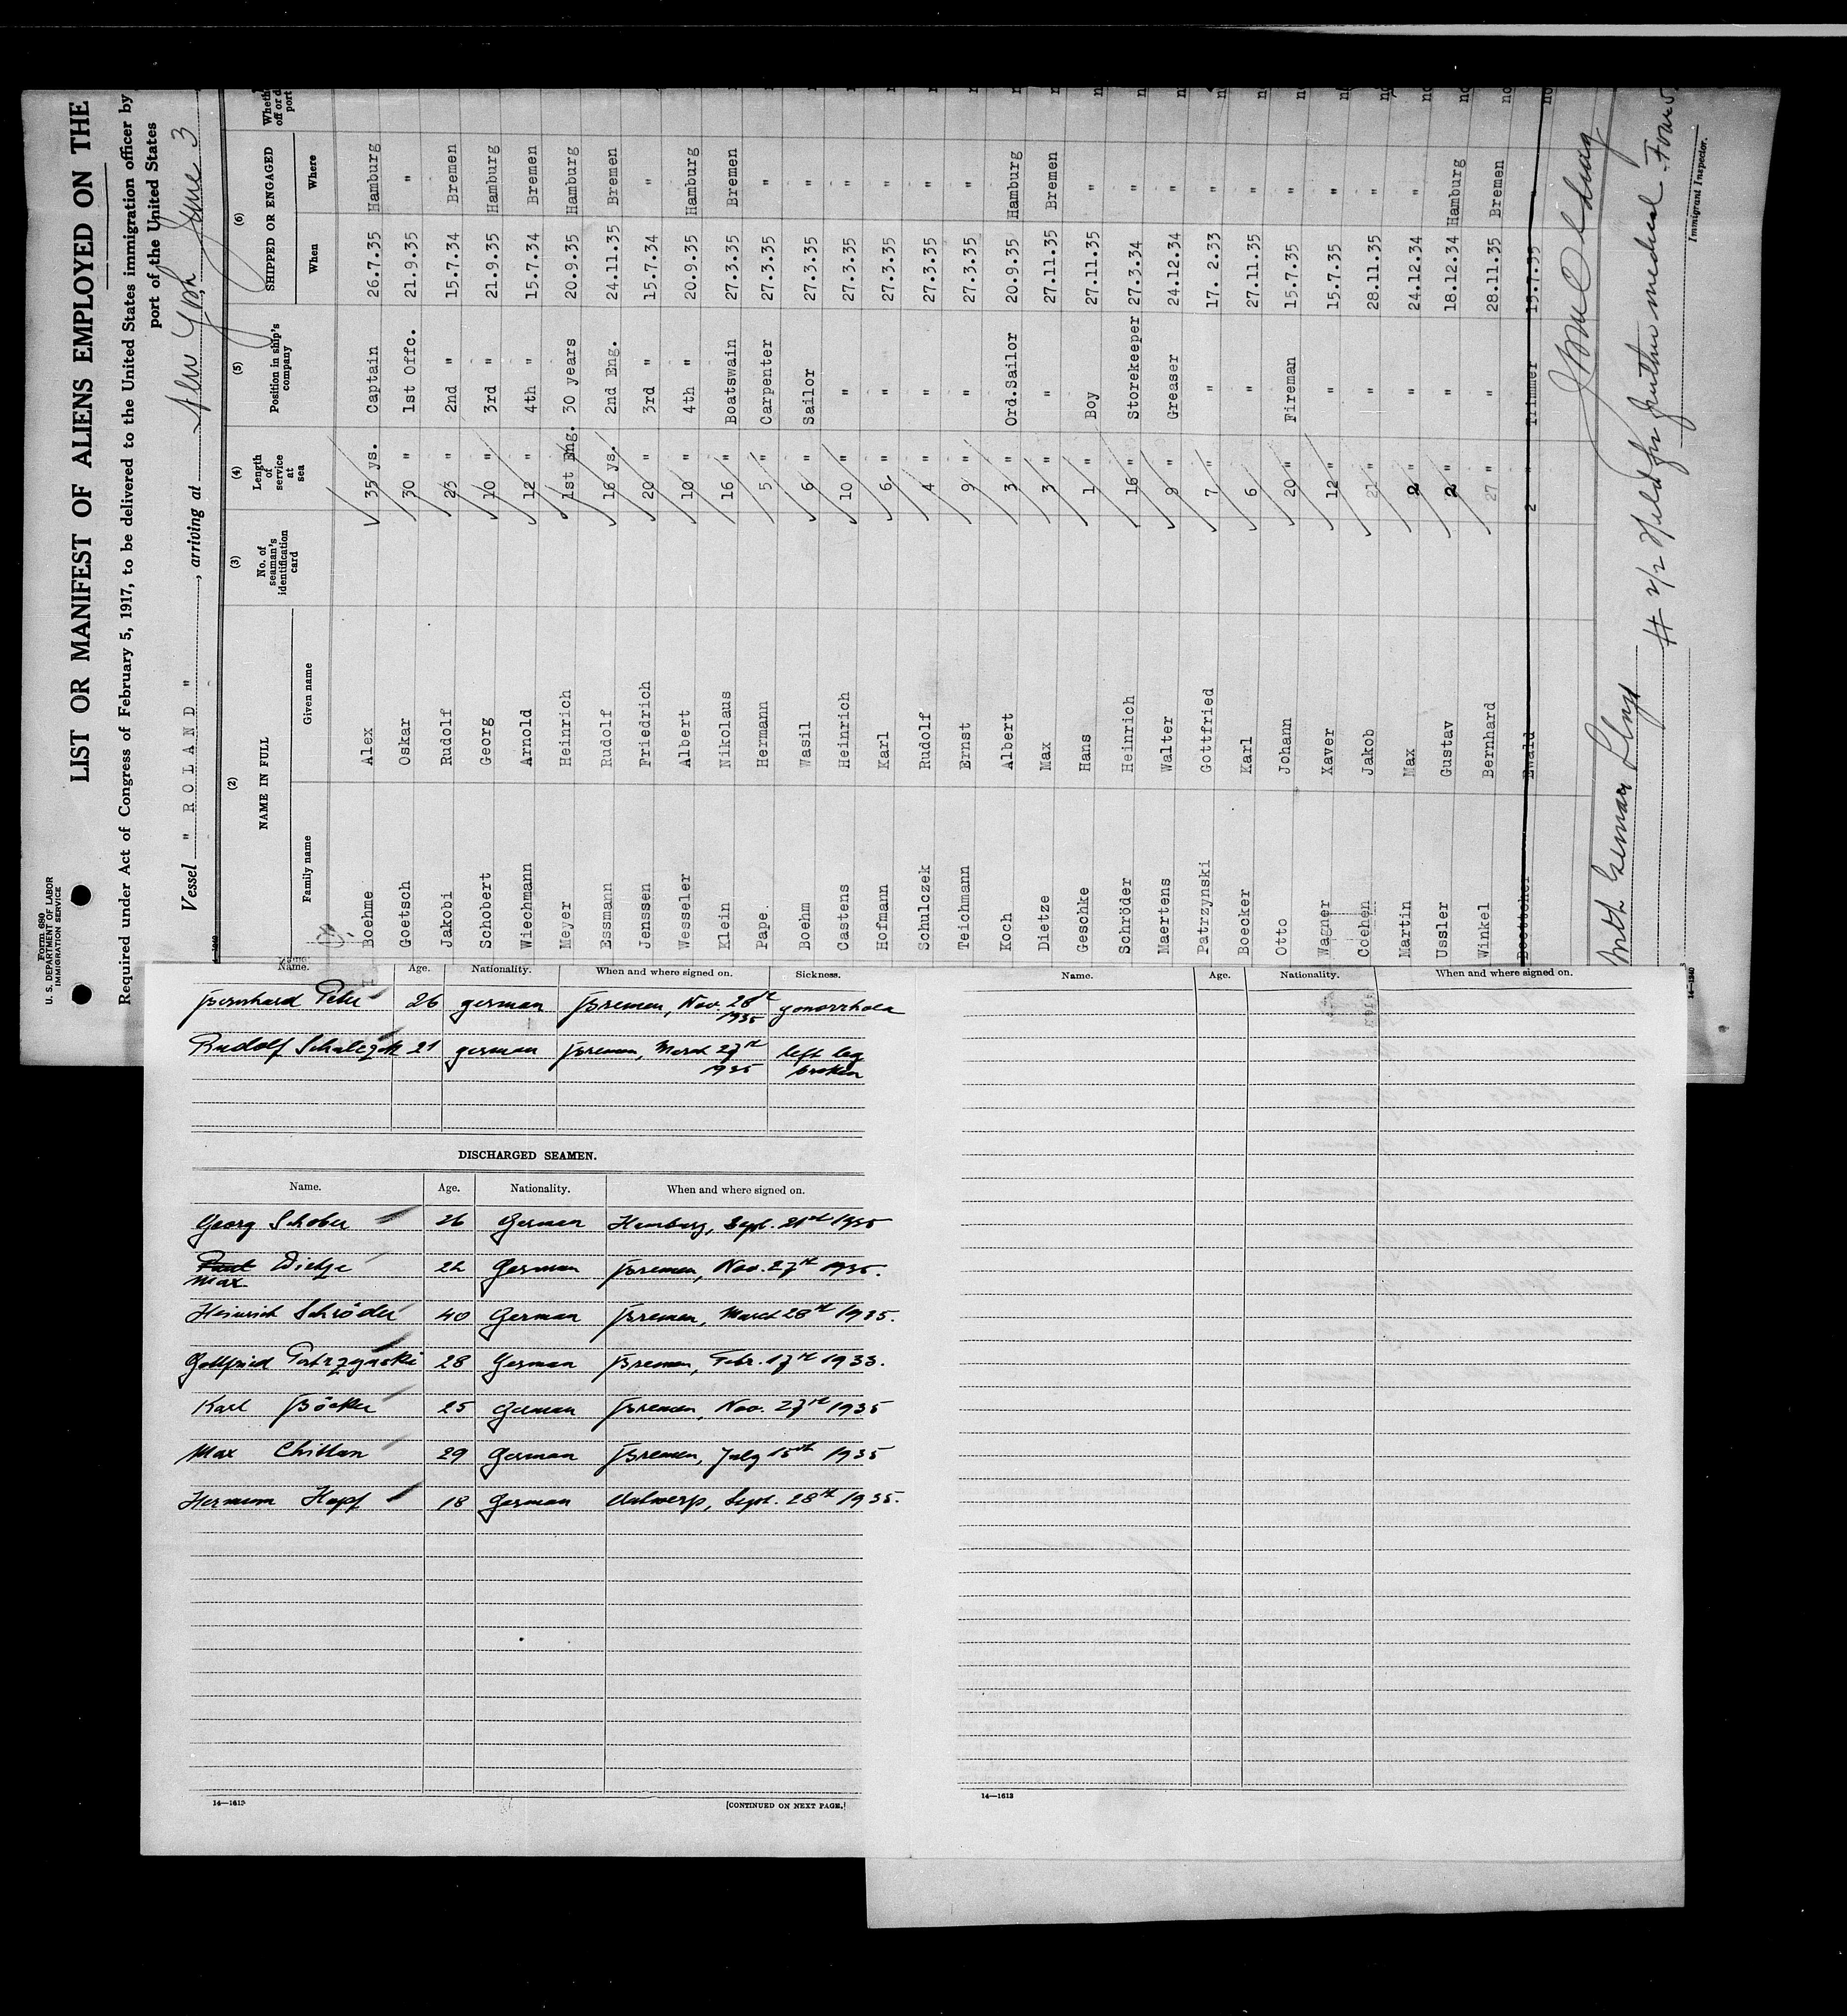 Form 680
U. S. DEPARTMENT OF LABOR
IMMIGRATION SERVICE
LIST OR MANIFEST OF ALIENS EMPLOYED ON THE
Required under Act of Congress of February 5, 1917, to be delivered to the United States immigration officer by
port of the United States
Vessel " ROLAND ", arriving at New York, June 3
(2) (3) (4) (5) (6)
NAME IN FULL No. of seaman's identification card Length of service at sea Position in ship's company SHIPPED OR ENGAGED
Family name Given name When Where
Boehme Alex 35 ys. Captain 26.7.35 Hamburg
Goetsch Oskar 30 " 1st Offc. 21.9.35 "
Jakobi Rudolf 23 " 2nd " 15.7.34 Bremen
Schobert Georg 10 " 3rd " 21.9.35 Hamburg
Wiechmann Arnold 12 " 4th " 15.7.34 Bremen
Meyer Heinrich 1st Eng. 30 years 20.9.35 Hamburg
Essmann Rudolf 16 ys. 2nd Eng. 24.11.35 Bremen
Jenssen Friedrich 20 " 3rd " 15.7.34 "
Wesseler Albert 10 " 4th " 20.9.35 Hamburg
Klein Nikolaus 16 " Boatswain 27.3.35 Bremen
Pape Hermann 5 " Carpenter 27.3.35 "
Boehm Wasil 6 " Sailor 27.3.35 "
Castens Heinrich 10 " " 27.3.35 "
Hofmann Karl 6 " " 27.3.35 "
Schulczek Rudolf 4 " " 27.3.35 "
Teichmann Ernst 9 " " 27.3.35 "
Koch Albert 3 " Ord.Sailor 20.9.35 Hamburg
Dietze Max 3 " " 27.11.35 Bremen
Geschke Hans 1 " Boy 27.11.35 "
Schröder Heinrich 16 " Storekeeper 27.3.34 "
Maertens Walter 9 " Greaser 24.12.34 "
Patrzynski Gottfried 7 " " 17. 2.33 "
Boecker Karl 6 " " 27.11.35 "
Otto Johann 20 " Fireman 15.7.35 "
Wagner Xaver 12 " " 15.7.35 "
Coehen Jakob 21 " " 28.11.35 "
Martin Max 2 " " 24.12.34 "
Ussler Gustav 2 " " 18.12.34 Hamburg
Winkel Bernhard 27 " " 28.11.35 Bremen
Boettcher Ewald 2 " Trimmer 15.7.35 "
North German Lloyd
Held for further medical
Immigrant Inspector.
14—1240
Name. Age. Nationality. When and where signed on. Sickness.
Bernhard Peter 26 german Bremen, Nov. 28th 1935 gonorrhoea
Rudolf Schulczek 21 german Bremen, March 27th 1935 left leg broken
DISCHARGED SEAMEN.
Name. Age. Nationality. When and where signed on.
Georg Schober 26 German Hamburg, Sept. 21st 1935
Paul Dietze 22 German Bremen, Nov. 27th 1935.
Max
Heinrich Schröder 40 German Bremen, March 28th 1935.
Gottfried Patrzynski 28 German Bremen, Febr. 17th 1933.
Karl Böcker 25 German Bremen, Nov. 27th 1935
Max 29 German Bremen, July 15th 1935
Hermann Hopf 18 German Antwerp, Sept. 28th 1935.
14—1613
[CONTINUED ON NEXT PAGE.]
Name. Age. Nationality. When and where signed on.
14—1613